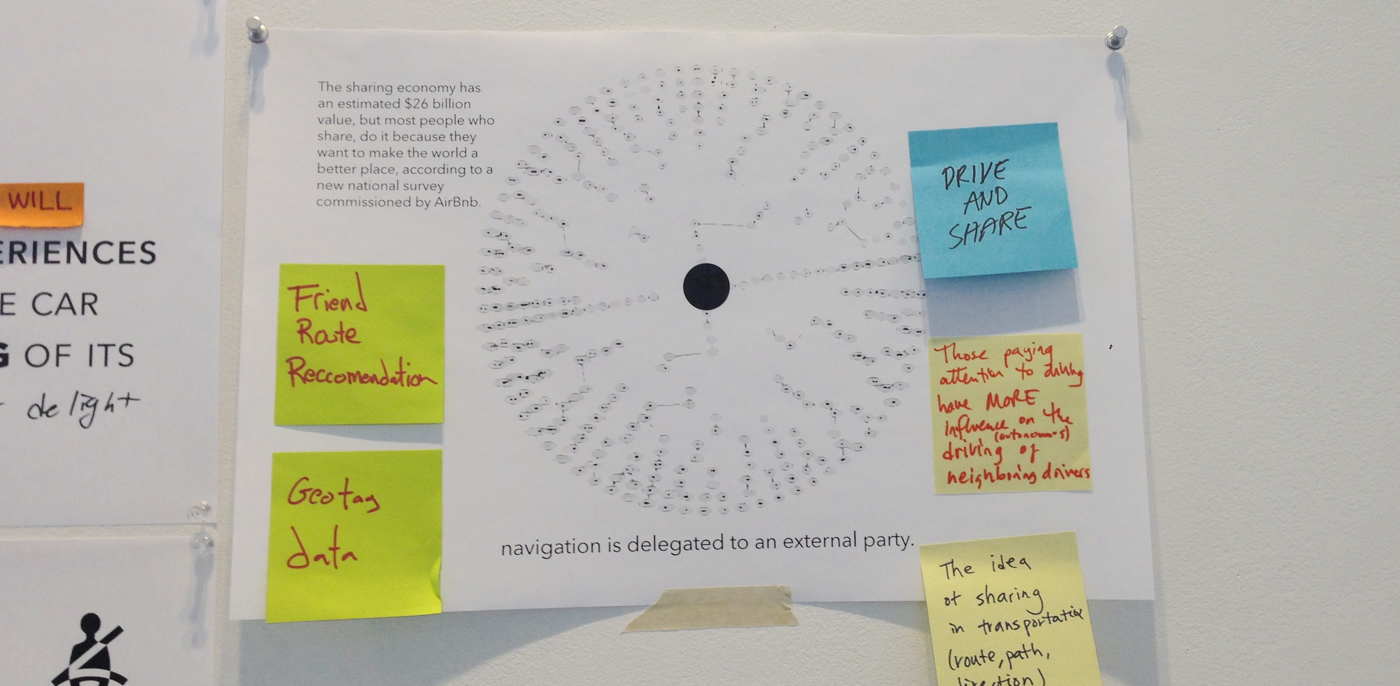 WILL
ERIENCES
E CAR
G OF ITS
delight
The sharing economy has
an estimated $26 billion
value, but most people who
share, do it because they
want to make the world a
better place, according to a
new national survey
commissioned by AirBnb.
Friend
Route
Reccomendation
Geotag
data
navigation is delegated to an external party.
DRIVE
AND
SHARE
Those paying
attention to driving
have MORE
influence on the
(autonomous)
driving of
neighboring drivers
The idea
of sharing
in transportation
(route, path,
direction)